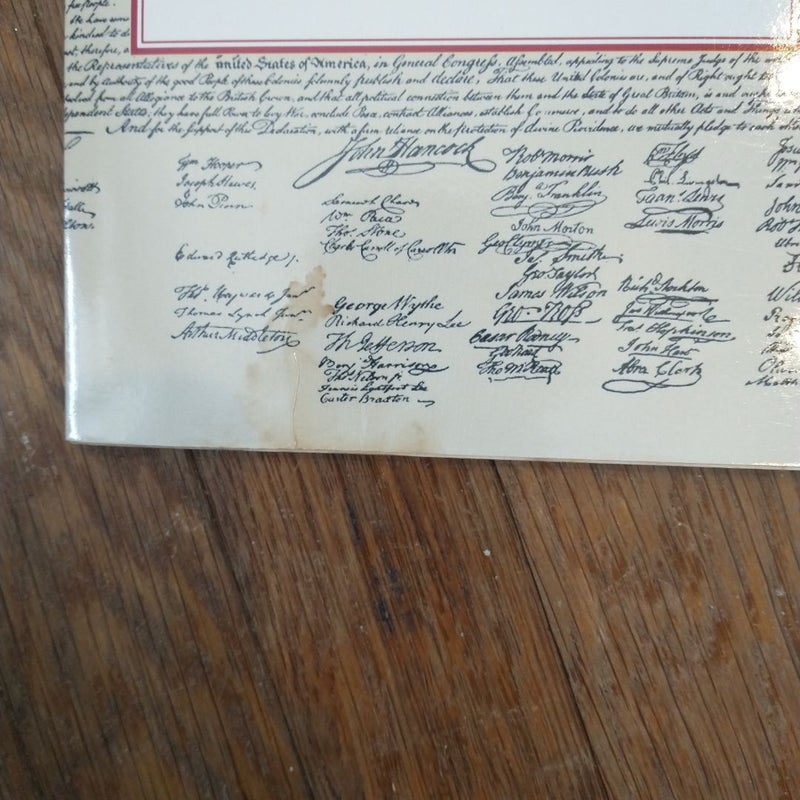 for People.
We have
kindred to
therefore, a
the Representatives of the united States of America, in General Congress, Assembled, appealing to the Supreme Judge of the
and by Authority of the good People of these Colonies solemnly publish and declare, That these United Colonies are, and of Right ought to
from all Allegiance to the British Crown, and that all political connection between them and the State of Great Britain, is and
pendent States, they have full Power to levy War, conclude Peace, contract Alliances, establish Commerce, and to do all other Acts and Things
And for the support of this Declaration, with a firm reliance on the Protection of divine Providence, we mutually pledge to each
Wm Hooper
Joseph Hewes,
John Penn
Edward Rutledge /.
Thos. Heyward Junr.
Thomas Lynch Junr.
Arthur Middleton
John Hancock
Samuel Chase
Wm. Paca
Thos. Stone
Charles Carroll of Carrollton
George Wythe
Richard Henry Lee
Th Jefferson
Benj Harrison
Thos Nelson jr.
Francis Lightfoot Lee
Carter Braxton
Robt Morris
Benjamin Rush
Benj. Franklin
John Morton
Geo Clymer
Jas. Smith
Geo Taylor
James Wilson
Geo. Ross
Caesar Rodney
Geo Read
Tho M:Kean
Wm Floyd
Phil. Livingston
Frans. Lewis
Lewis Morris
Richd. Stockton
Jno Witherspoon
Fras. Hopkinson
John Hart
Abra Clark